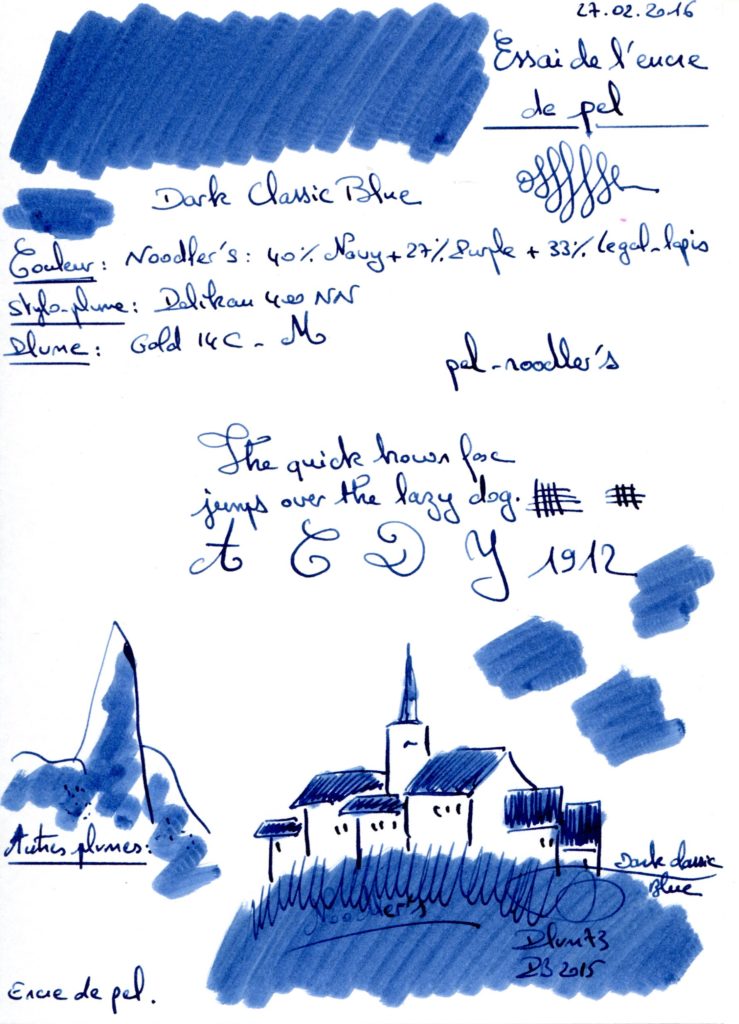 27.02.2016
Essai de l'encre
de pel
Dark Classic Blue
Couleur : Noodler's : 40% Navy + 27% Purple + 33% Legal-lapis
Stylo-plume : Pelikan 400 NN
Plume : Gold 14C - M
pel-noodler's
The quick brown fox
jumps over the lazy dog.
A C D Y 1912
Autres plumes :
Dark classic
Blue
Noodler's
Plum73
PB 2015
Encre de pel.